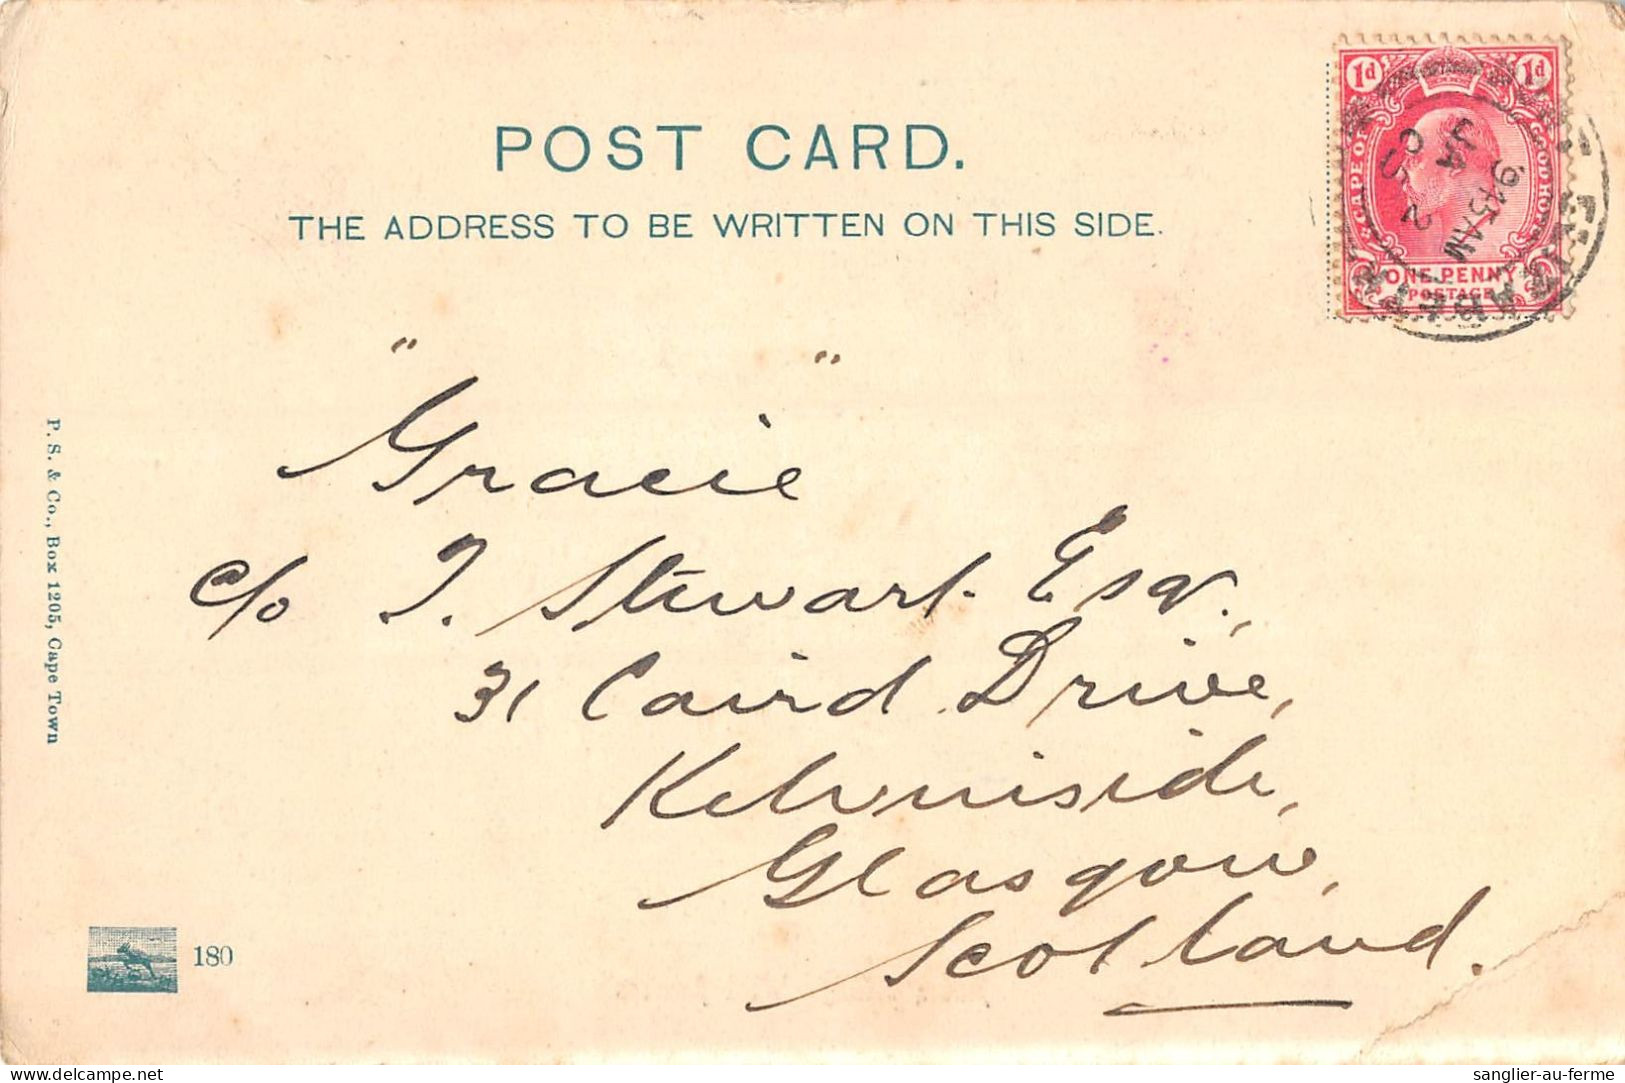 POST CARD.
THE ADDRESS TO BE WRITTEN ON THIS SIDE.
1d 1d
CAPE OF GOOD HOPE
ONE PENNY
POSTAGE
9 45 AM
JA
"Gracie"
c/o J. Stewart. Esqr.,
31 Caird Drive,
Kelvinside,
Glasgow,
Scotland.
P. S. & Co., Box 1205, Cape Town
180
sanglier-au-ferme